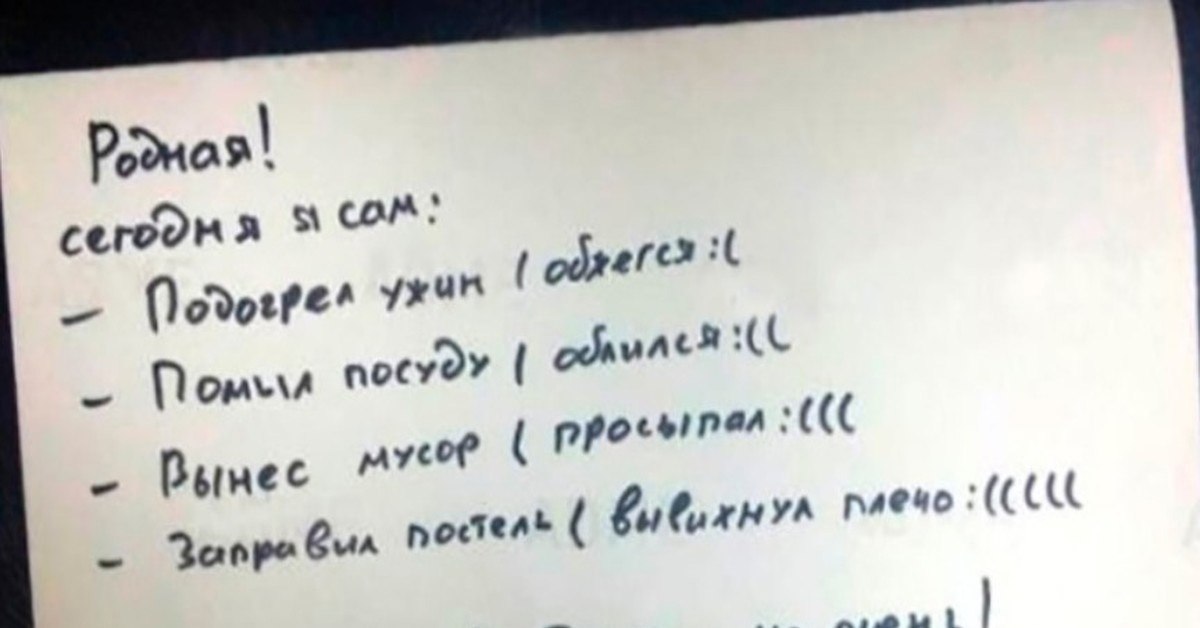 Родная!
сегодня я сам:
- Подогрел ужин (обжегся:(
- Помыл посуду (облился:((
- Вынес мусор (просыпал:(((
- Заправил постель (вывихнул плечо:(((((